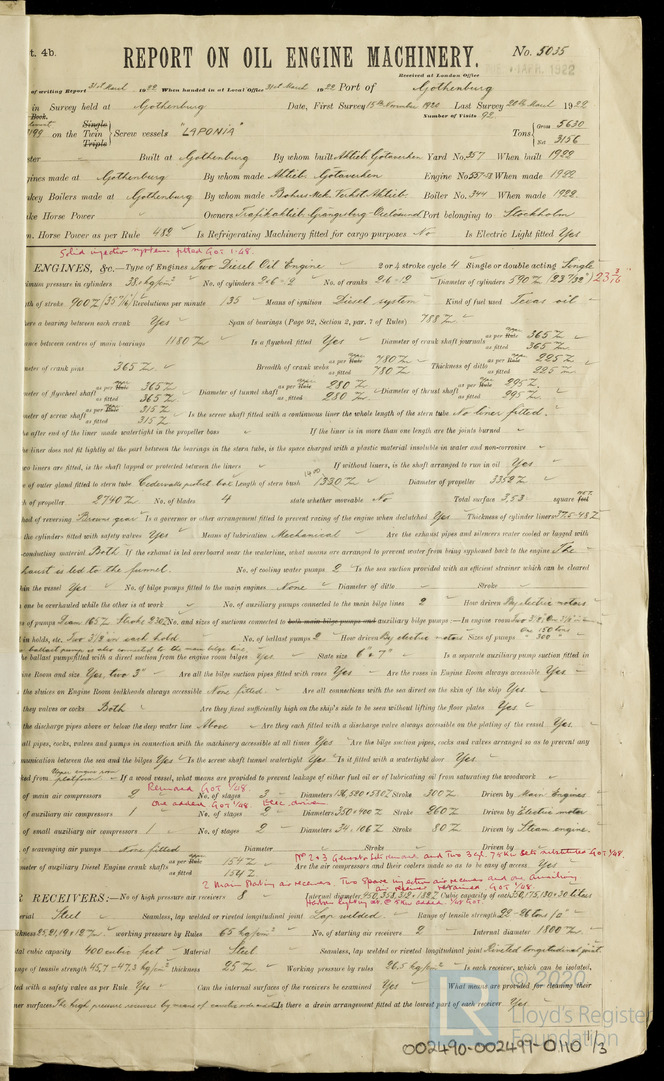 t. 4b.
REPORT ON OIL ENGINE MACHINERY.
No. 5035
APR. 1922
Received at London Office
of writing Report 31st March 1922 When handed in at Local Office 31st March 1922 Port of Gothenburg
in Survey held at Gothenburg Date, First Survey 15th November 1920 Last Survey 20th March 1922
Book. Number of Visits 92
on the Single Twin Triple Screw vessels "LAPONIA" Tons Gross 5630 Net 3156
ster Built at Gothenburg By whom built Aktieb. Götaverken Yard No. 357 When built 1922
gines made at Gothenburg By whom made Aktieb. Götaverken Engine No. 557-58 When made 1922
nkey Boilers made at Gothenburg By whom made Bohus Mek. Verkst. Aktieb. Boiler No. 344 When made 1922.
ake Horse Power Owners Trafikaktieb. Grängesberg-Oxelösund Port belonging to Stockholm
m. Horse Power as per Rule 482 Is Refrigerating Machinery fitted for cargo purposes No Is Electric Light fitted Yes
Solid injection system fitted GOT 1.48.
ENGINES, &c.—Type of Engines Two Diesel Oil Engine 2 or 4 stroke cycle 4 Single or double acting Single
ximum pressure in cylinders 38 kg/cm² No. of cylinders 2×6=12 No. of cranks 2×6=12 Diameter of cylinders 590 (23 7/32") 23 3/16
gth of stroke 900 Revolutions per minute 135 Means of ignition Diesel system Kind of fuel used Texas oil
here a bearing between each crank Yes Span of bearings (Page 92, Section 2, par. 7 of Rules) 788
ance between centres of main bearings 1180 Is a flywheel fitted Yes Diameter of crank shaft journals as per Rule 365 as fitted 365
meter of crank pins 365 Breadth of crank webs as per Rule 780 as fitted 780 Thickness of ditto as per Rule 225 as fitted 225
meter of flywheel shaft as per Rule 365 as fitted 365 Diameter of tunnel shaft as per Rule 280 as fitted 280 Diameter of thrust shaft as per Rule 295 as fitted 295
meter of screw shaft as per Rule 315 as fitted 315 Is the screw shaft fitted with a continuous liner the whole length of the stern tube No liner fitted.
he after end of the liner made watertight in the propeller boss If the liner is in more than one length are the joints burned
he liner does not fit tightly at the part between the bearings in the stern tube, is the space charged with a plastic material insoluble in water and non-corrosive
wo liners are fitted, is the shaft lapped or protected between the liners If without liners, is the shaft arranged to run in oil Yes
e of outer gland fitted to stern tube Length of stern bush 1330 Diameter of propeller 3352
h of propeller 2740 No. of blades 4 state whether moveable No Total surface 3,53 square feet
hod of reversing Browns gear Is a governor or other arrangement fitted to prevent racing of the engine when declutched Yes Thickness of cylinder liners 37.5-43
the cylinders fitted with safety valves Yes Means of lubrication Mechanical Are the exhaust pipes and silencers water cooled or lagged with
conducting material Both If the exhaust is led overboard near the waterline, what means are arranged to prevent water from being syphoned back to the engine The
haust is led to the funnel. No. of cooling water pumps 2 Is the sea suction provided with an efficient strainer which can be cleared
hin the vessel Yes No. of bilge pumps fitted to the main engines None Diameter of ditto Stroke
one be overhauled while the other is at work No. of auxiliary pumps connected to the main bilge lines 2 How driven By electric motors
s of pumps Diam 165 Stroke 230 No. and sizes of suctions connected to both main bilge pumps and auxiliary bilge pumps:—In engine room
in holds, etc. Two 3 1/2 in each hold No. of ballast pumps 2 How driven By electric motors Sizes of pumps 300
ballast pump is also connected to the main bilge line.
he ballast pump fitted with a direct suction from the engine room bilges Yes State size 6" & 7" Is a separate auxiliary pump suction fitted in
ine Room and size Yes, two 3" Are all the bilge suction pipes fitted with roses Yes Are the roses in Engine Room always accessible Yes
the sluices on Engine Room bulkheads always accessible None fitted. Are all connections with the sea direct on the skin of the ship Yes
they valves or cocks Both Are they fixed sufficiently high on the ship's side to be seen without lifting the floor plates Yes
the discharge pipes above or below the deep water line Above Are they each fitted with a discharge valve always accessible on the plating of the vessel Yes.
all pipes, cocks, valves and pumps in connection with the machinery accessible at all times Yes Are the bilge suction pipes, cocks and valves arranged so as to prevent any
munication between the sea and the bilges Yes Is the screw shaft tunnel watertight Yes Is it fitted with a watertight door Yes
ked from Upper engine room platform If a wood vessel, what means are provided to prevent leakage of either fuel oil or of lubricating oil from saturating the woodwork
Removed GOT 1/48.
of main air compressors 2 No. of stages 3 Diameters 136, 520 & 580 Stroke 300 Driven by Main Engines
One added GOT 1/48 Elec. driven
of auxiliary air compressors 1 No. of stages 2 Diameters 350 & 400 Stroke 260 Driven by Electric motor
of small auxiliary air compressors 1 No. of stages 2 Diameters 34 & 106 Stroke 80 Driven by Steam engine.
of scavenging air pumps None fitted Diameter Stroke Driven by
No 2 & 3 Generator sets removed and Two 3 cyl. 75 Kw sets substituted GOT 1/48.
meter of auxiliary Diesel Engine crank shafts as per Rule 154 as fitted 154 Are the air compressors and their coolers made so as to be easy of access Yes
2 Main Starting air receivers. Two spare injection air receivers and one auxiliary air receiver retained. GOT 1/48
R RECEIVERS:—No. of high pressure air receivers 8 Internal diameter 450, 353, 312 & 182 Cubic capacity of each 350, 175, 130 & 30 litres
erial Steel Seamless, lap welded or riveted longitudinal joint Lap welded. Range of tensile strength 22-26 tons/□"
ickness 25, 21, 19 & 12 working pressure by Rules 65 kg/cm² No. of starting air receivers 2 Internal diameter 1800
tal cubic capacity 400 cubic feet Material Steel Seamless, lap welded or riveted longitudinal joint Riveted longitudinal joint
nge of tensile strength 45,7-47.3 kg/mm² thickness 25 Working pressure by rules 26.5 kg/cm² Is each receiver, which can be isolated,
ted with a safety valve as per Rule Yes Can the internal surfaces of the receivers be examined Yes What means are provided for cleaning their
ner surfaces The high pressure receivers by means of Is there a drain arrangement fitted at the lowest part of each receiver Yes
© 2020
LR
Lloyd's Register
Foundation
002490-002497-0110 1/3